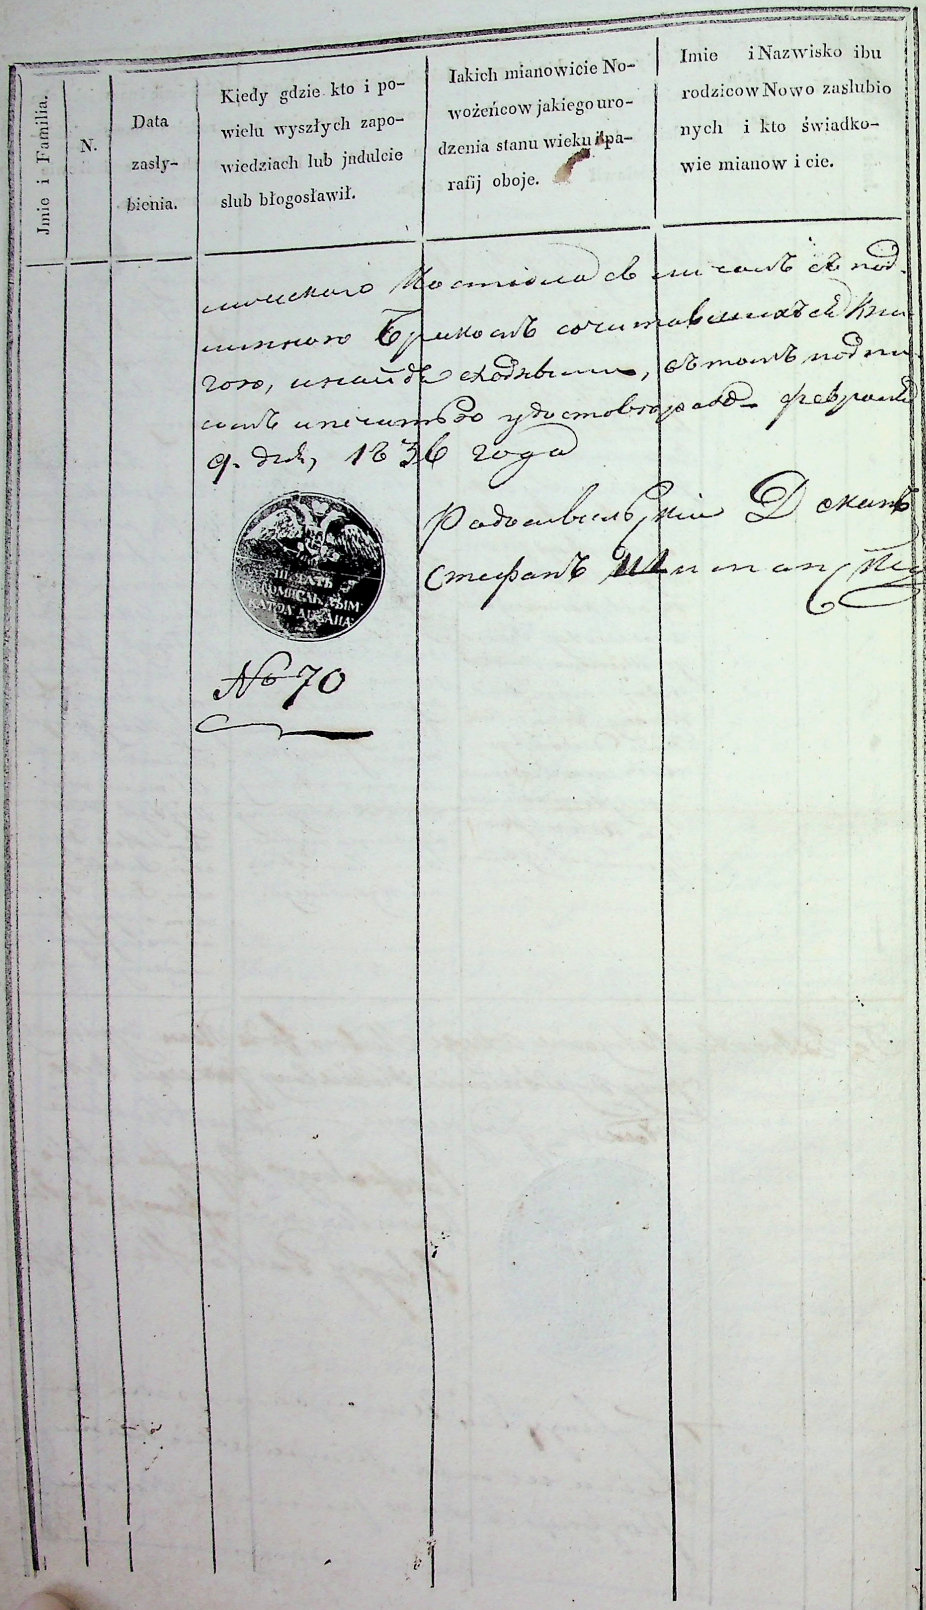 Jmie i Familia.
N.
Data
zasły-
bienia.
Kiedy gdzie kto i po-
wielu wyszłych zapo-
wiedziach lub jndulcie
slub błogosławił.
Iakich mianowicie No-
wożeńcow jakiego uro-
dzenia stanu wieku i pa-
rafij oboje.
Imie i Nazwisko ibu
rodzicow Nowo zaslubio
nych i kto świadko-
wie mianow i cie.
Костіола съ под-
линною сочитавшихся Кни
гою, и найдя сходнымъ, въ томъ подпи-
сомъ и печатью удостоверяю Февраля
9. дня, 1836 года
Декань
Стефанъ
ПЕЧАТЬ
№ 70